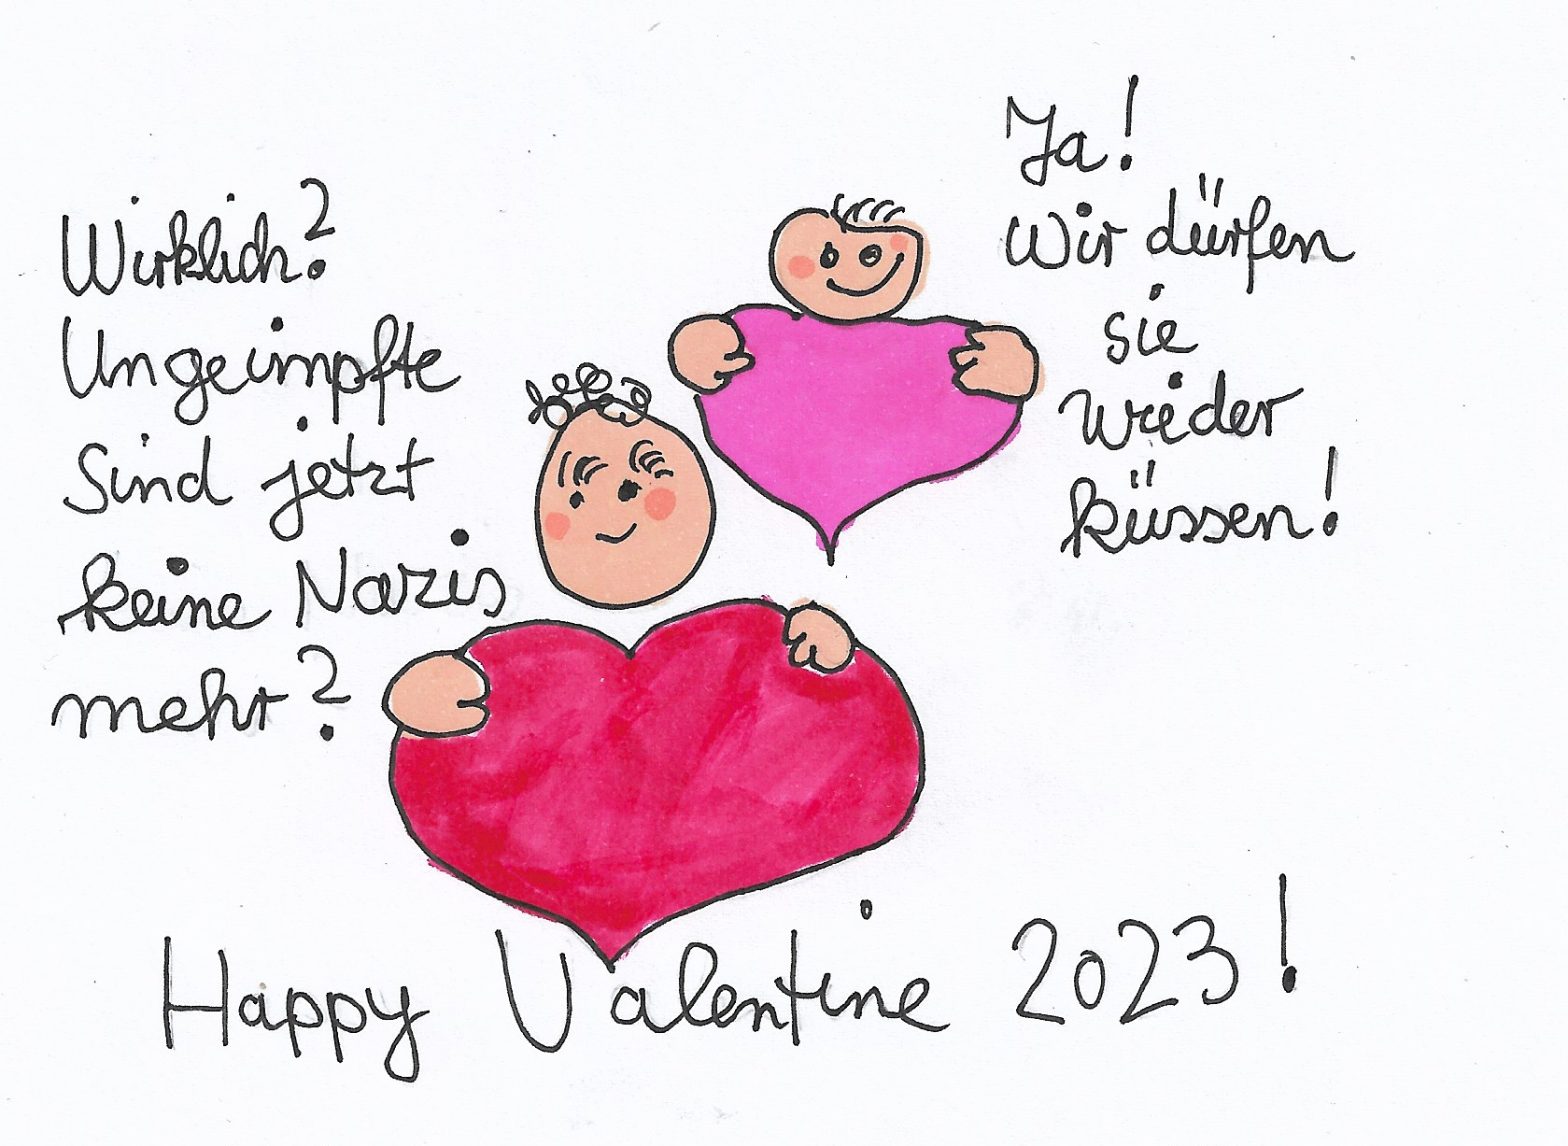 Wirklich?
Ungeimpfte
sind jetzt
keine Nazis
mehr?
Ja!
Wir dürfen
sie
wieder
küssen!
Happy Valentine 2023!